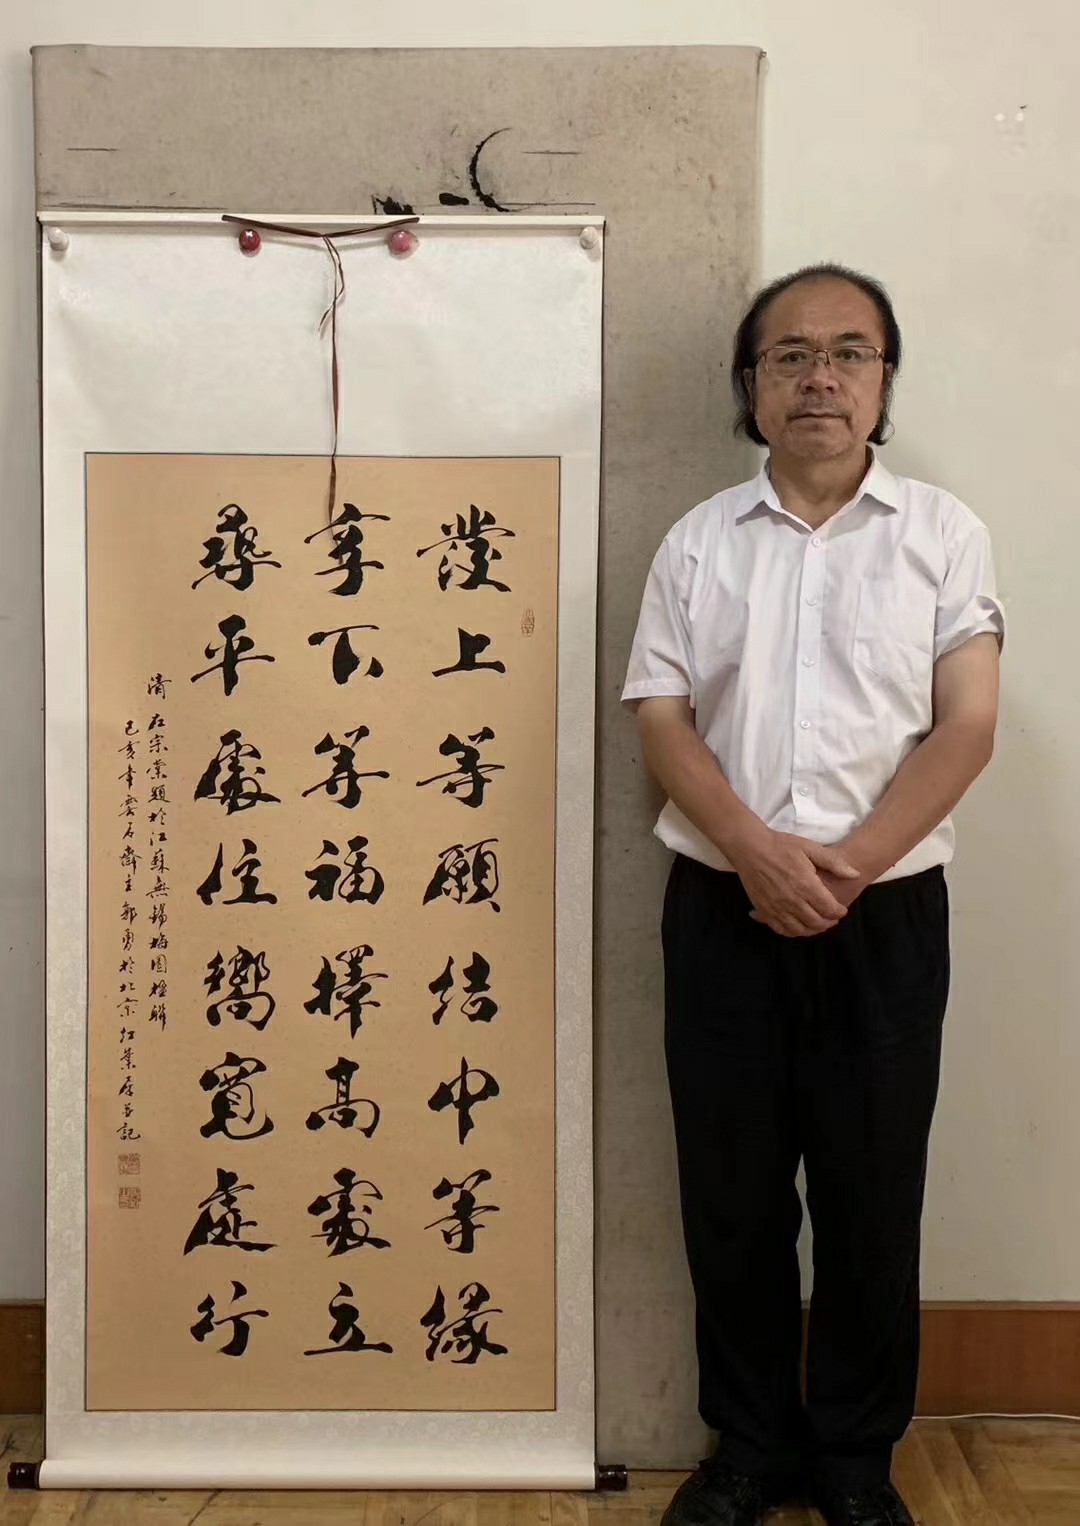 發上等願結中等緣
享下等福擇高處立
尋平處住嚮寬處行
清左宗棠題於江蘇無錫梅園楹聯
己亥年雲石齋主郭勇於北京紅葉記